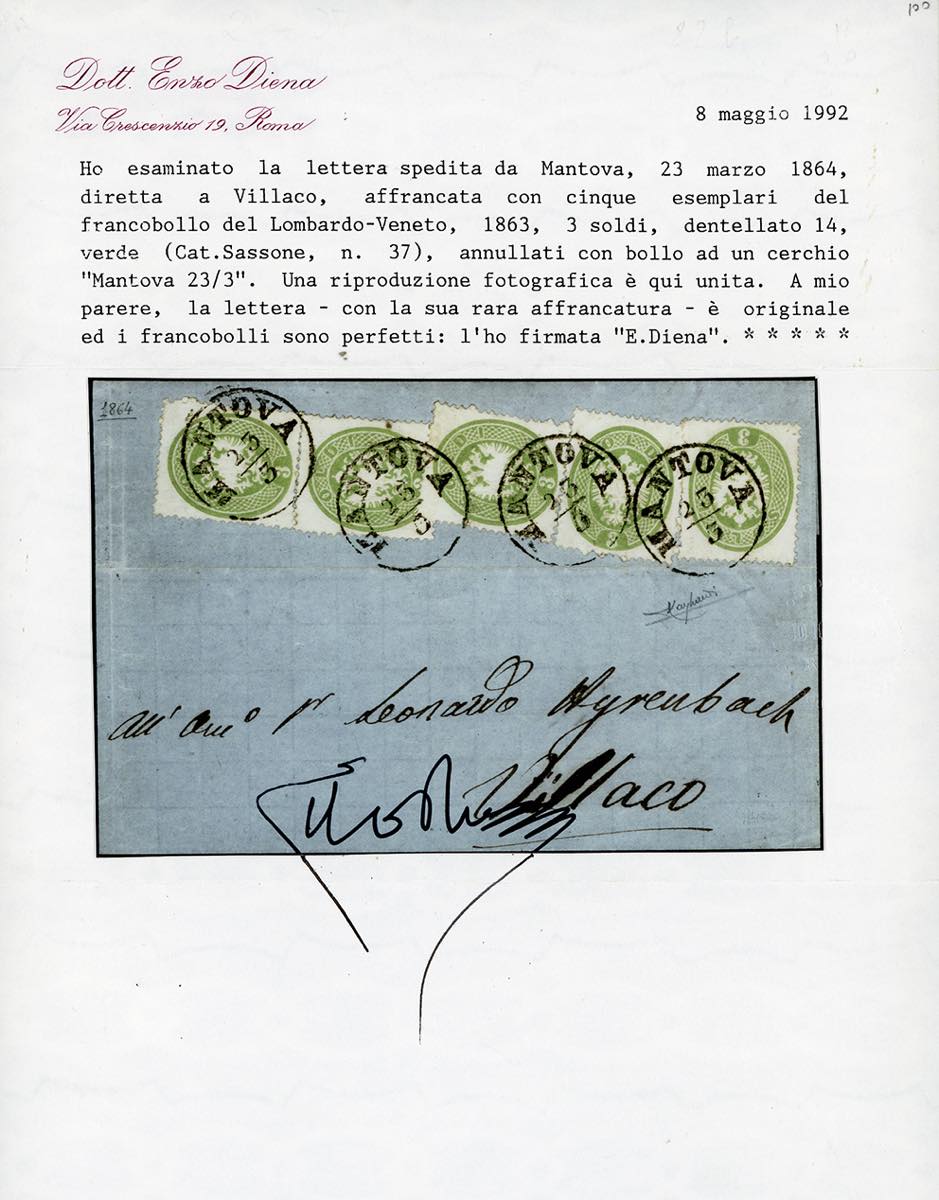 100
Dott. Enzo Diena
Via Crescenzio 19, Roma
8 maggio 1992
Ho esaminato la lettera spedita da Mantova, 23 marzo 1864,
diretta a Villaco, affrancata con cinque esemplari del
francobollo del Lombardo-Veneto, 1863, 3 soldi, dentellato 14,
verde (Cat.Sassone, n. 37), annullati con bollo ad un cerchio
"Mantova 23/3". Una riproduzione fotografica è qui unita. A mio
parere, la lettera - con la sua rara affrancatura - è originale
ed i francobolli sono perfetti: l'ho firmata "E.Diena". * * * * *
1864
MANTOVA 23/3
MANTOVA 23/3
MANTOVA 23/3
MANTOVA 23/3
3
all'
Leonardo Hyrenbach
Villaco